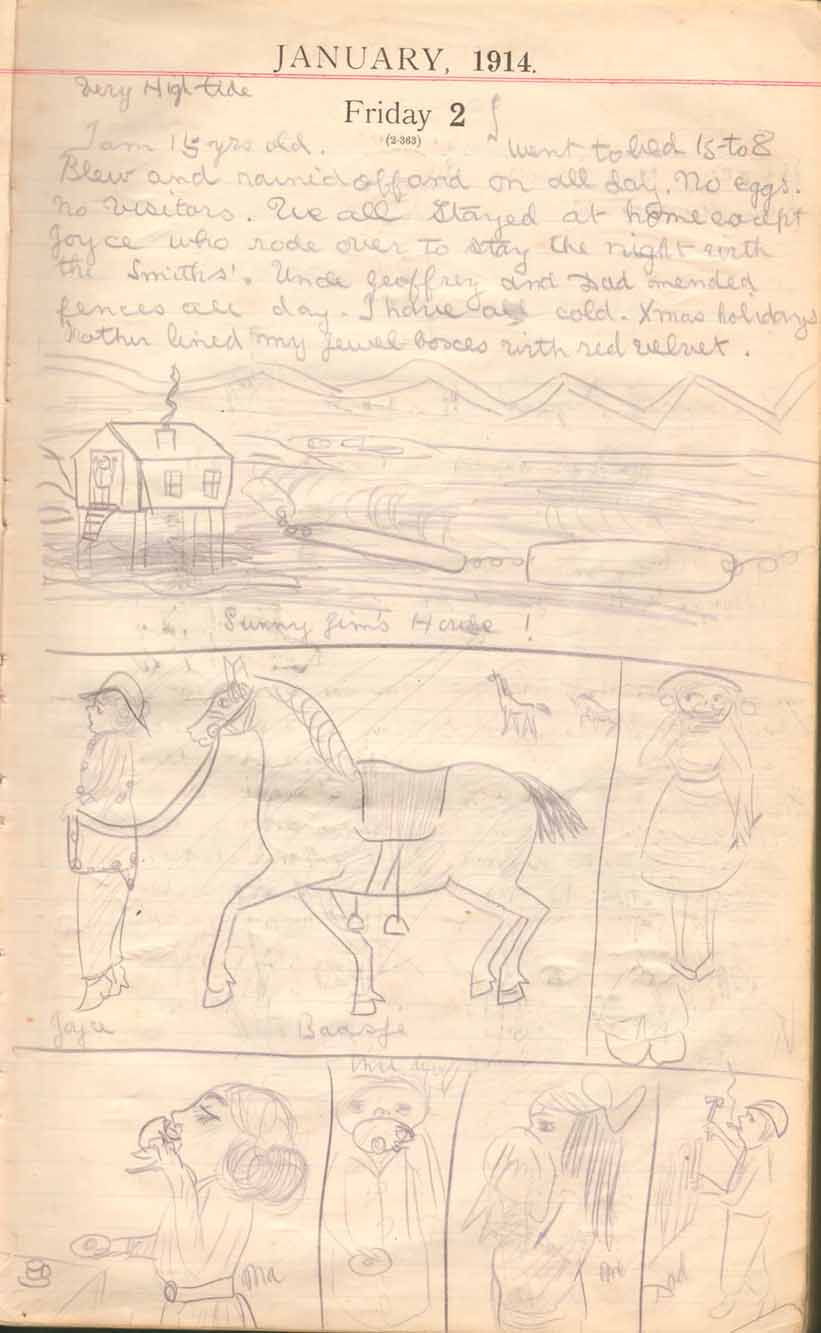 JANUARY, 1914.
Very High tide
Friday 2
(2-363)
I am 15 yrs old. went to bed 15 to 8
Blew and rained off and on all day. No eggs.
No visitors. We all stayed at home except
Joyce who rode over to stay the night with
the Smiths'. Uncle Geoffrey and Dad mended
fences all day. I have a cold. Xmas holidays
Mother lined my jewel boxes with red velvet.
Sunny Jim's House!
Joyce Baasje
Ma
Dad